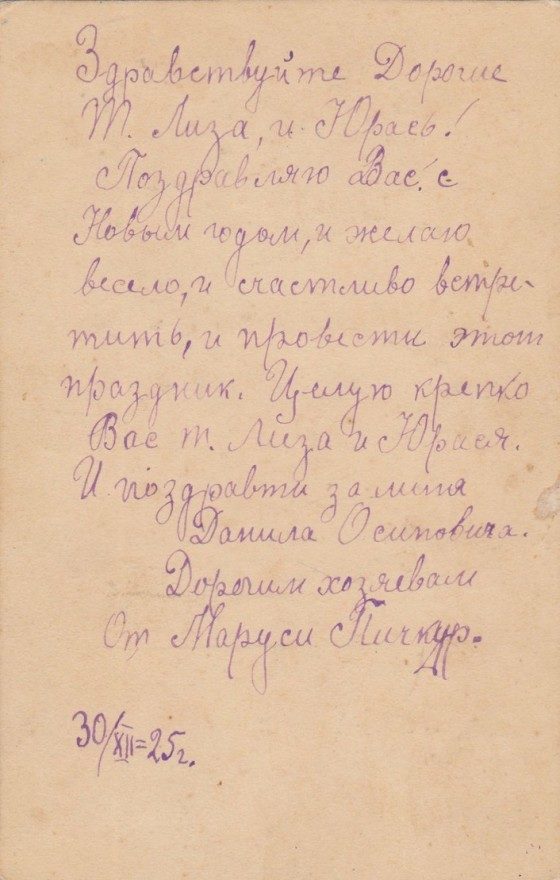 Здравствуйте Дорогие
Т. Лиза, и Юрась!
Поздравляю Вас с
Новым годом, и желаю
весело, и счастливо встре-
тить, и провести этот
праздник. Целую крепко
Вас т. Лиза и Юрася.
И поздравти за миня
Данила Осиповича.
Дорогим хозяевам
От Маруси Пичкур.
30/XII=25г.